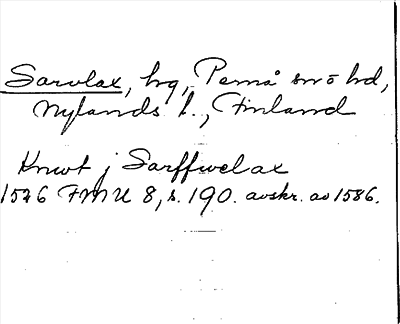 Sarvlax, hg, Pernå snö hd,
Nylands l., Finland
Knwt j Sarffwelax
1526 FMU 8, s. 190. avskr. av 1586.